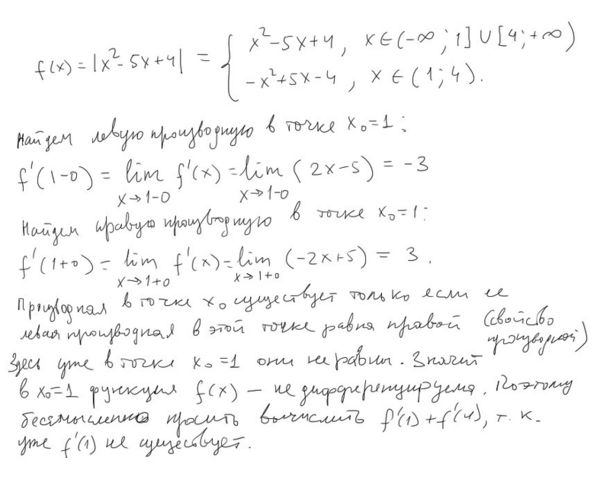 f(x) = |x²-5x+4| = { x²-5x+4, x∈(-∞;1]∪[4;+∞)
-x²+5x-4, x∈(1;4).
Найдем левую производную в точке x₀=1:
f'(1-0) = lim f'(x) = lim (2x-5) = -3
x→1-0 x→1-0
Найдем правую производную в точке x₀=1:
f'(1+0) = lim f'(x) = lim (-2x+5) = 3.
x→1+0 x→1+0
Производная в точке x₀ существует только если ее
левая производная в этой точке равна правой (свойство производной)
Здесь уже в точке x₀=1 они не равны. Значит
в x₀=1 функция f(x) – не дифференцируема. Поэтому
бессмысленно просить вычислить f'(1)+f'(4), т.к.
уже f'(1) не существует.